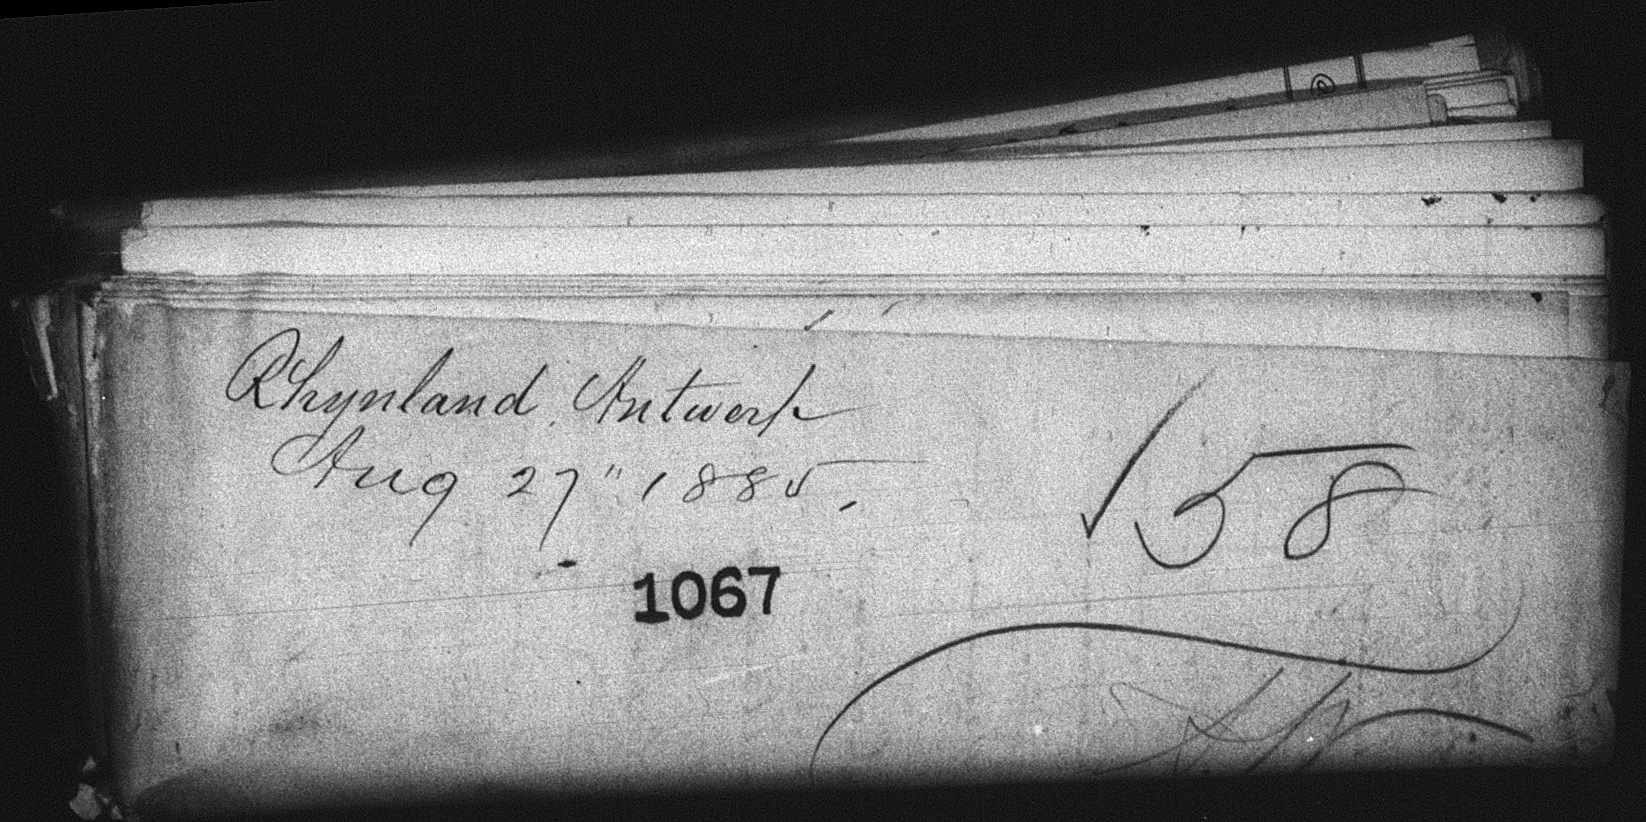 Rhynland, Antwerp
Aug 27" 1885.
✓ 58
1067